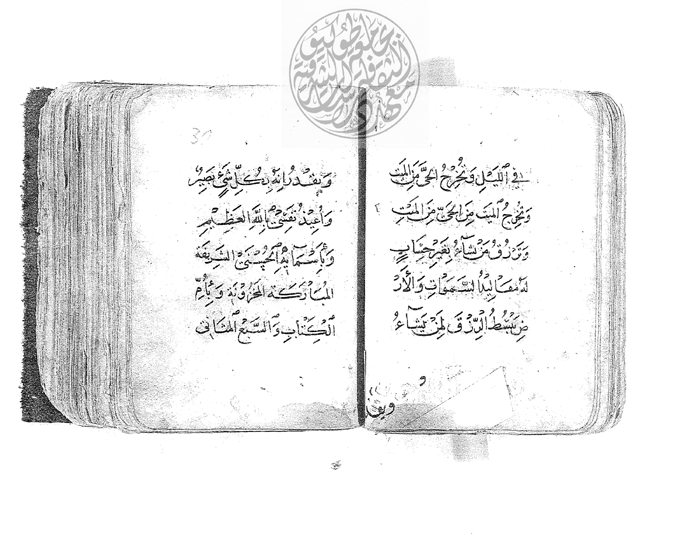 في الليل وتخرج الحي من الميت
وتخرج الميت من الحي من الميت
وترزق من تشاء بغير حساب
له مقاليد السموات والأر
ض يبسط الرزق لمن يشاء
ويقد
ويقدر انه بكل شيء بصير
واعيذ نفسي بالله العظيم
وبأسمائه الحسنى الشريفة
المباركة المخزونة وبأم
الكتاب والسبع المثاني
31